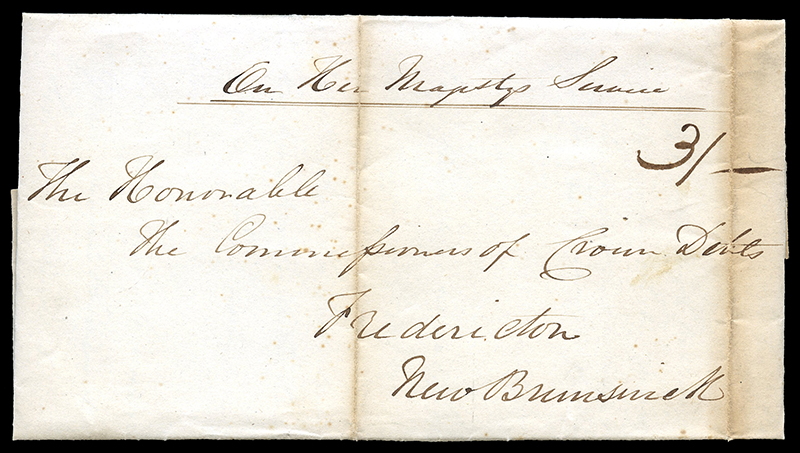 On Her Majestys Service
3/-
The Honorable
the Commissioners of Crown Debts
Fredericton
New Brunswick